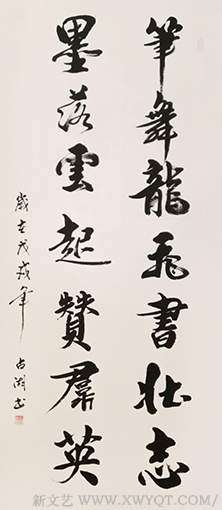 筆舞龍飛書壯志
墨落雲起贊羣英
歲在戊戌年
占湖书
新文艺 / WWW.XWYQT.COM